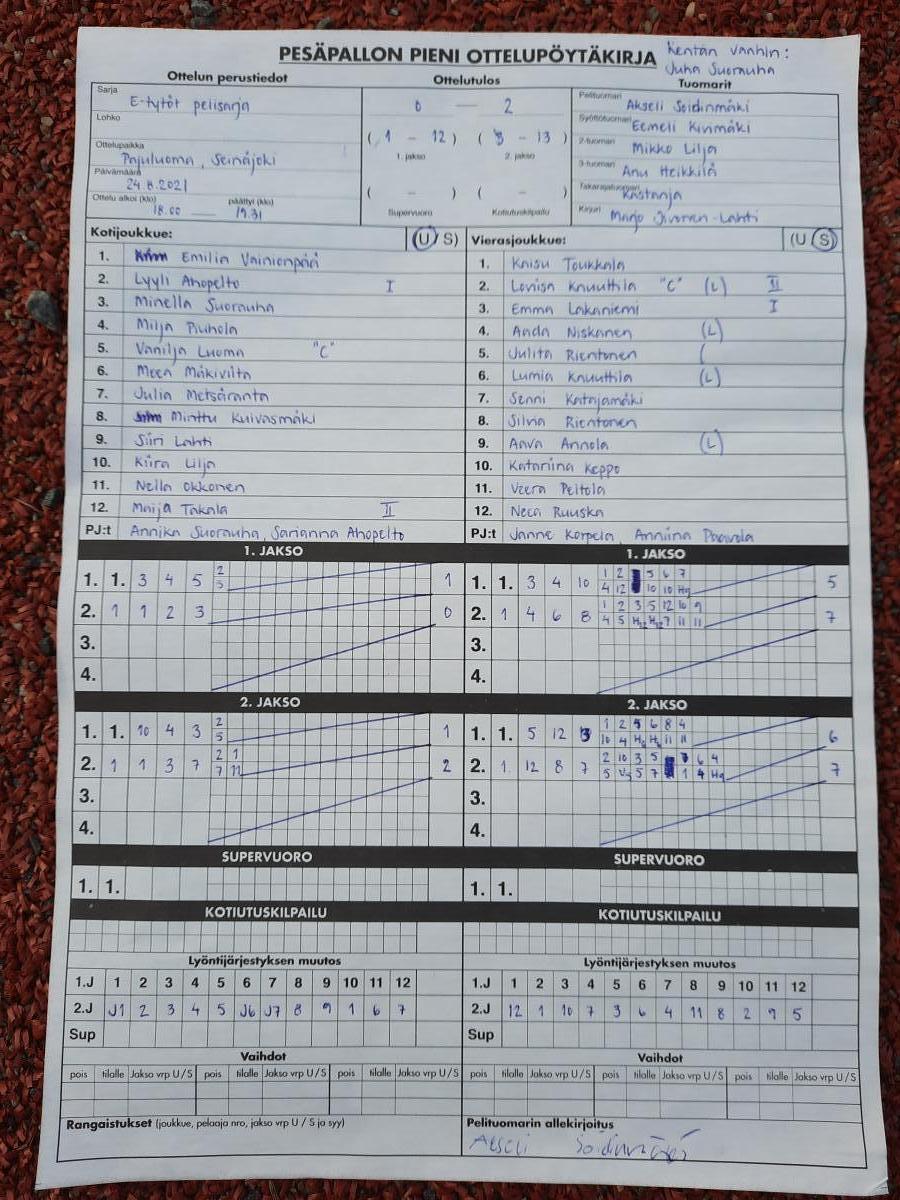 PESÄPALLON PIENI OTTELUPÖYTÄKIRJA
Kentän vanhin:
Juha Suorauha
Ottelun perustiedot
Ottelutulos
Tuomarit
Sarja
E-tytöt pelisarja
Lohko
Ottelupaikka
Pajuluoma, Seinäjoki
Päivämäärä
24.8.2021
Ottelu alkoi (klo) päättyi (klo)
18.00 — 19.31
0 — 2
( 1 - 12 ) ( 3 - 13 )
1. jakso 2. jakso
( - ) ( - )
Supervuoro Kotiutuskilpailu
Pelituomari Akseli Soidinmäki
Syöttötuomari Eemeli Kivimäki
2-tuomari Mikko Lilja
3-tuomari Anu Heikkilä
Takarajatuomari Kastanja
Kirjuri Marjo -Lahti
Kotijoukkue: (U/S)
1. Emilia Vainionpää
2. Lyyli Ahopelto I
3. Minella Suorauha
4. Milja Piuhola
5. Vanilja Luoma "C"
6. Meea Mäkivilta
7. Julia Metsäranta
8. Minttu Kuivasmäki
9. Siiri Lahti
10. Kiira Lilja
11. Nella Okkonen
12. Maija Takala II
PJ:t Annika Suorauha, Sarianna Ahopelto
Vierasjoukkue: (U/S)
1. Kaisu Toukkala
2. Loviisa Knuuttila "C" (L) II
3. Emma Lakaniemi I
4. Aada Niskanen (L)
5. Julita Rientonen (
6. Lumia Knuuttila (L)
7. Senni Katajamäki
8. Silvia Rientonen
9. Aava Annola (L)
10. Katariina Keppo
11. Veera Peltola
12. Neea Ruuska
PJ:t Janne Korpela, Anniina Paavola
1. JAKSO
1. 1. 3 4 5 2 1
5
2. 1 1 2 3 0
3.
4.
1. JAKSO
1. 1. 3 4 10 1 2 5 6 7 5
4 12 10 10 H9
2. 1 4 6 8 1 2 3 5 12 10 9 7
4 5 H12 H12 7 11 11
3.
4.
2. JAKSO
1. 1. 10 4 3 2 1
5
2. 1 1 3 7 2 1 2
7 11
3.
4.
2. JAKSO
1. 1. 5 12 3 1 2 5 6 8 4 6
10 4 11 11
2. 1. 12 8 7 2 10 3 5 6 4 7
5 5 7 1 4 H9
3.
4.
SUPERVUORO
1. 1.
SUPERVUORO
1. 1.
KOTIUTUSKILPAILU
KOTIUTUSKILPAILU
Lyöntijärjestyksen muutos
1.J 1 2 3 4 5 6 7 8 9 10 11 12
2.J J1 2 3 4 5 J6 J7 8 9 1 6 7
Sup
Lyöntijärjestyksen muutos
1.J 1 2 3 4 5 6 7 8 9 10 11 12
2.J 12 1 10 7 3 6 4 11 8 2 9 5
Sup
Vaihdot
pois tilalle Jakso vrp U/S pois tilalle Jakso vrp U/S pois tilalle Jakso vrp U/S
Vaihdot
pois tilalle Jakso vrp U/S pois tilalle Jakso vrp U/S pois tilalle Jakso vrp U/S
Rangaistukset (joukkue, pelaaja nro, jakso vrp U / S ja syy)
Pelituomarin allekirjoitus
Akseli Soidinmäki